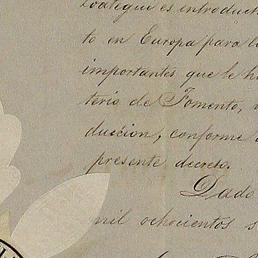 loategui es introduct
to en Europa para l
importantes que le h
terio de Fomento,
duccion, conforme
presente decreto.
Dado
mil ochocientos s